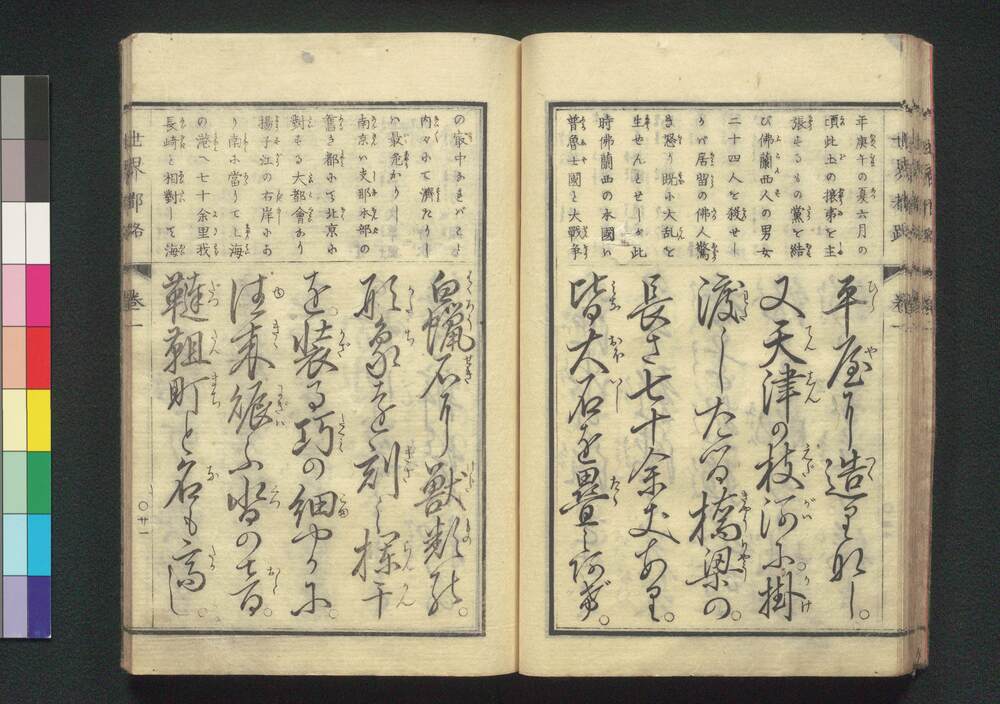 平庚午の夏六月の
頃此土の擾事を主
張せるもの黨を結
び佛蘭西人の男女
二十四人を殺せし
りバ居留の佛人驚
き怒り既に大乱を
生せんとせしか此
時佛蘭西の本國ハ
普魯士國と大戰爭
平屋に造りなし。
又天津の枝河に掛
渡したる橋梁の。
長さ七十余丈あり。
皆大石を疊
世界都路
卷一
の最中なれバとて
内々にて濟たりし
ハ最危かりし
南京ハ支那本部の
舊き都にて北京に
對せる大都會あり
揚子江の右岸にあ
り南に當りて上海
の港へ七十余里我
長崎と相對して海
白蠟石に獸類の。
形象を刻し欄干
を。装る巧の細やかに。
往来賑ふ沓の音。
鞋靼町と名も高し。
世界都路
卷一
〇廿一